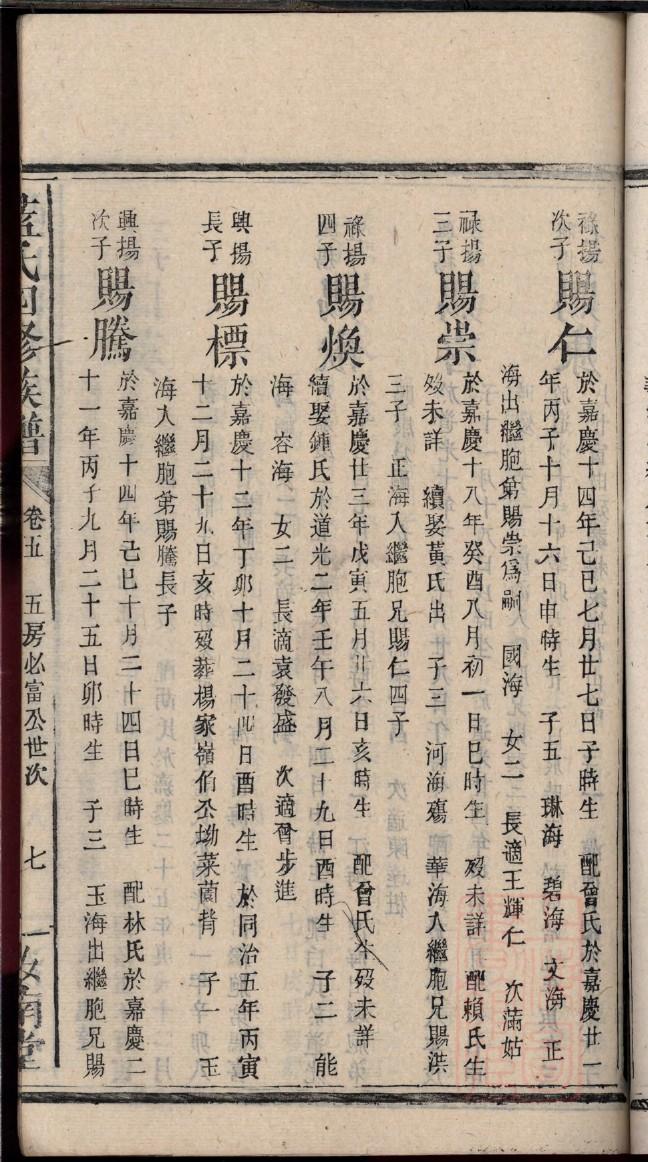 祿揚次子 賜仁 於嘉慶十四年己巳七月廿七日子時生 配曾氏於嘉慶廿一
年丙子十月十六日申時生 子五 琳海 碧海 文海 正
海出繼胞弟賜崇爲嗣 國海 女二 長適王輝仁 次滿姑
祿揚三子 賜崇 於嘉慶十八年癸酉八月初一日巳時生 歿未詳 配賴氏生
歿未詳 續娶黃氏出 子三 河海殤 華海入繼胞兄賜洪
三子 正海入繼胞兄賜仁四子
祿揚四子 賜煥 於嘉慶廿三年戊寅五月廿六日亥時生 配曾氏生歿未詳
續娶鍾氏於道光二年壬午八月二十九日酉時生 子二 能
海 容海 女二 長適袁發盛 次適曾步進
興揚長子 賜標 於嘉慶十二年丁卯十月二十四日酉時生 於同治五年丙寅
十二月二十九日亥時歿葬楊家嶺伯公坳菜園背 子一 玉
海入繼胞弟賜騰長子
興揚次子 賜騰 於嘉慶十四年己巳十月二十四日巳時生 配林氏於嘉慶二
十一年丙子九月二十五日卯時生 子三 玉海出繼胞兄賜
藍氏四修族譜 卷五 五房必富公世次 七 汝南堂